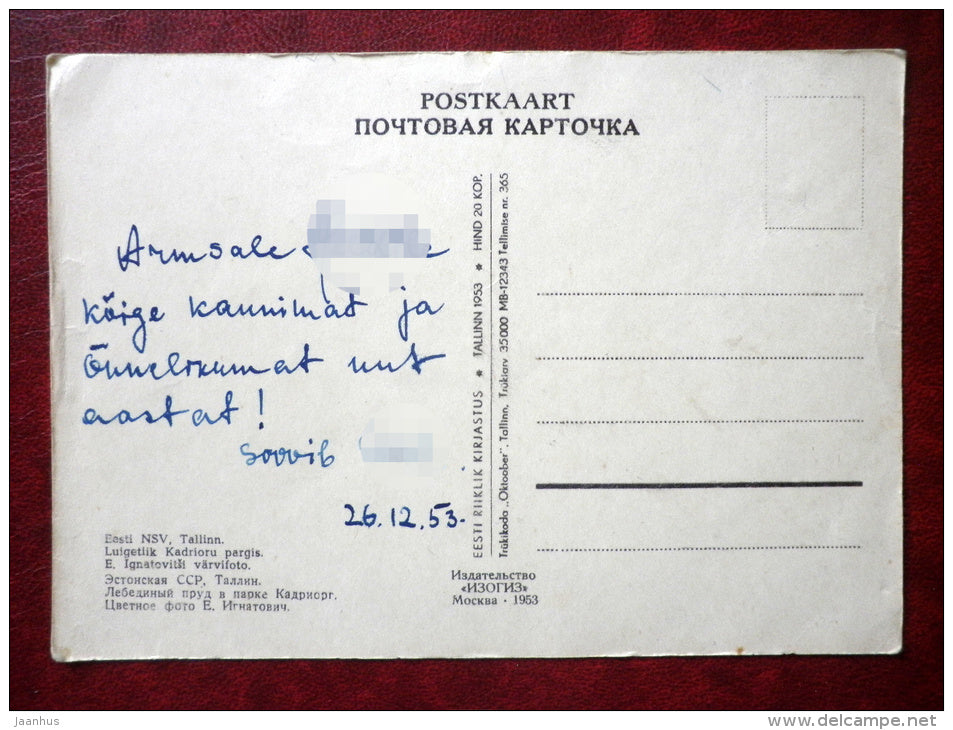 POSTKAART
ПОЧТОВАЯ КАРТОЧКА
Armsale
kõige kaunimat ja
Õnnelikumat uut
aastat!
Soovib
26.12.53.
Eesti NSV, Tallinn.
Luigetiik Kadrioru pargis.
E. Ignatovitši värvifoto.
Эстонская ССР, Таллин.
Лебединый пруд в парке Кадриорг.
Цветное фото Е. Игнатович.
EESTI RIIKLIK KIRJASTUS * TALLINN 1953 * HIND 20 KOP.
Trükikoda „Oktoober", Tallinn. Trükiarv 35000 MB-12343 Tellimise nr. 365
Издательство
«ИЗОГИЗ»
Москва · 1953
jaanhus
www.delcampe.net